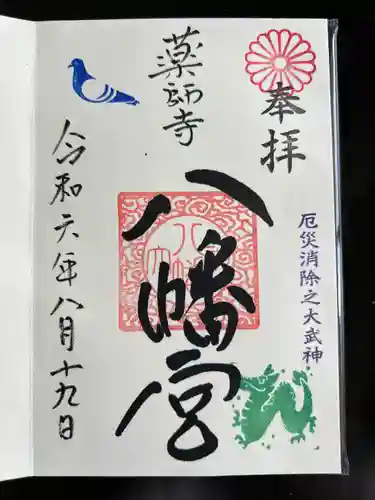 奉拝
厄災消除之大武神
薬師寺
八幡宮
令和六年八月十九日